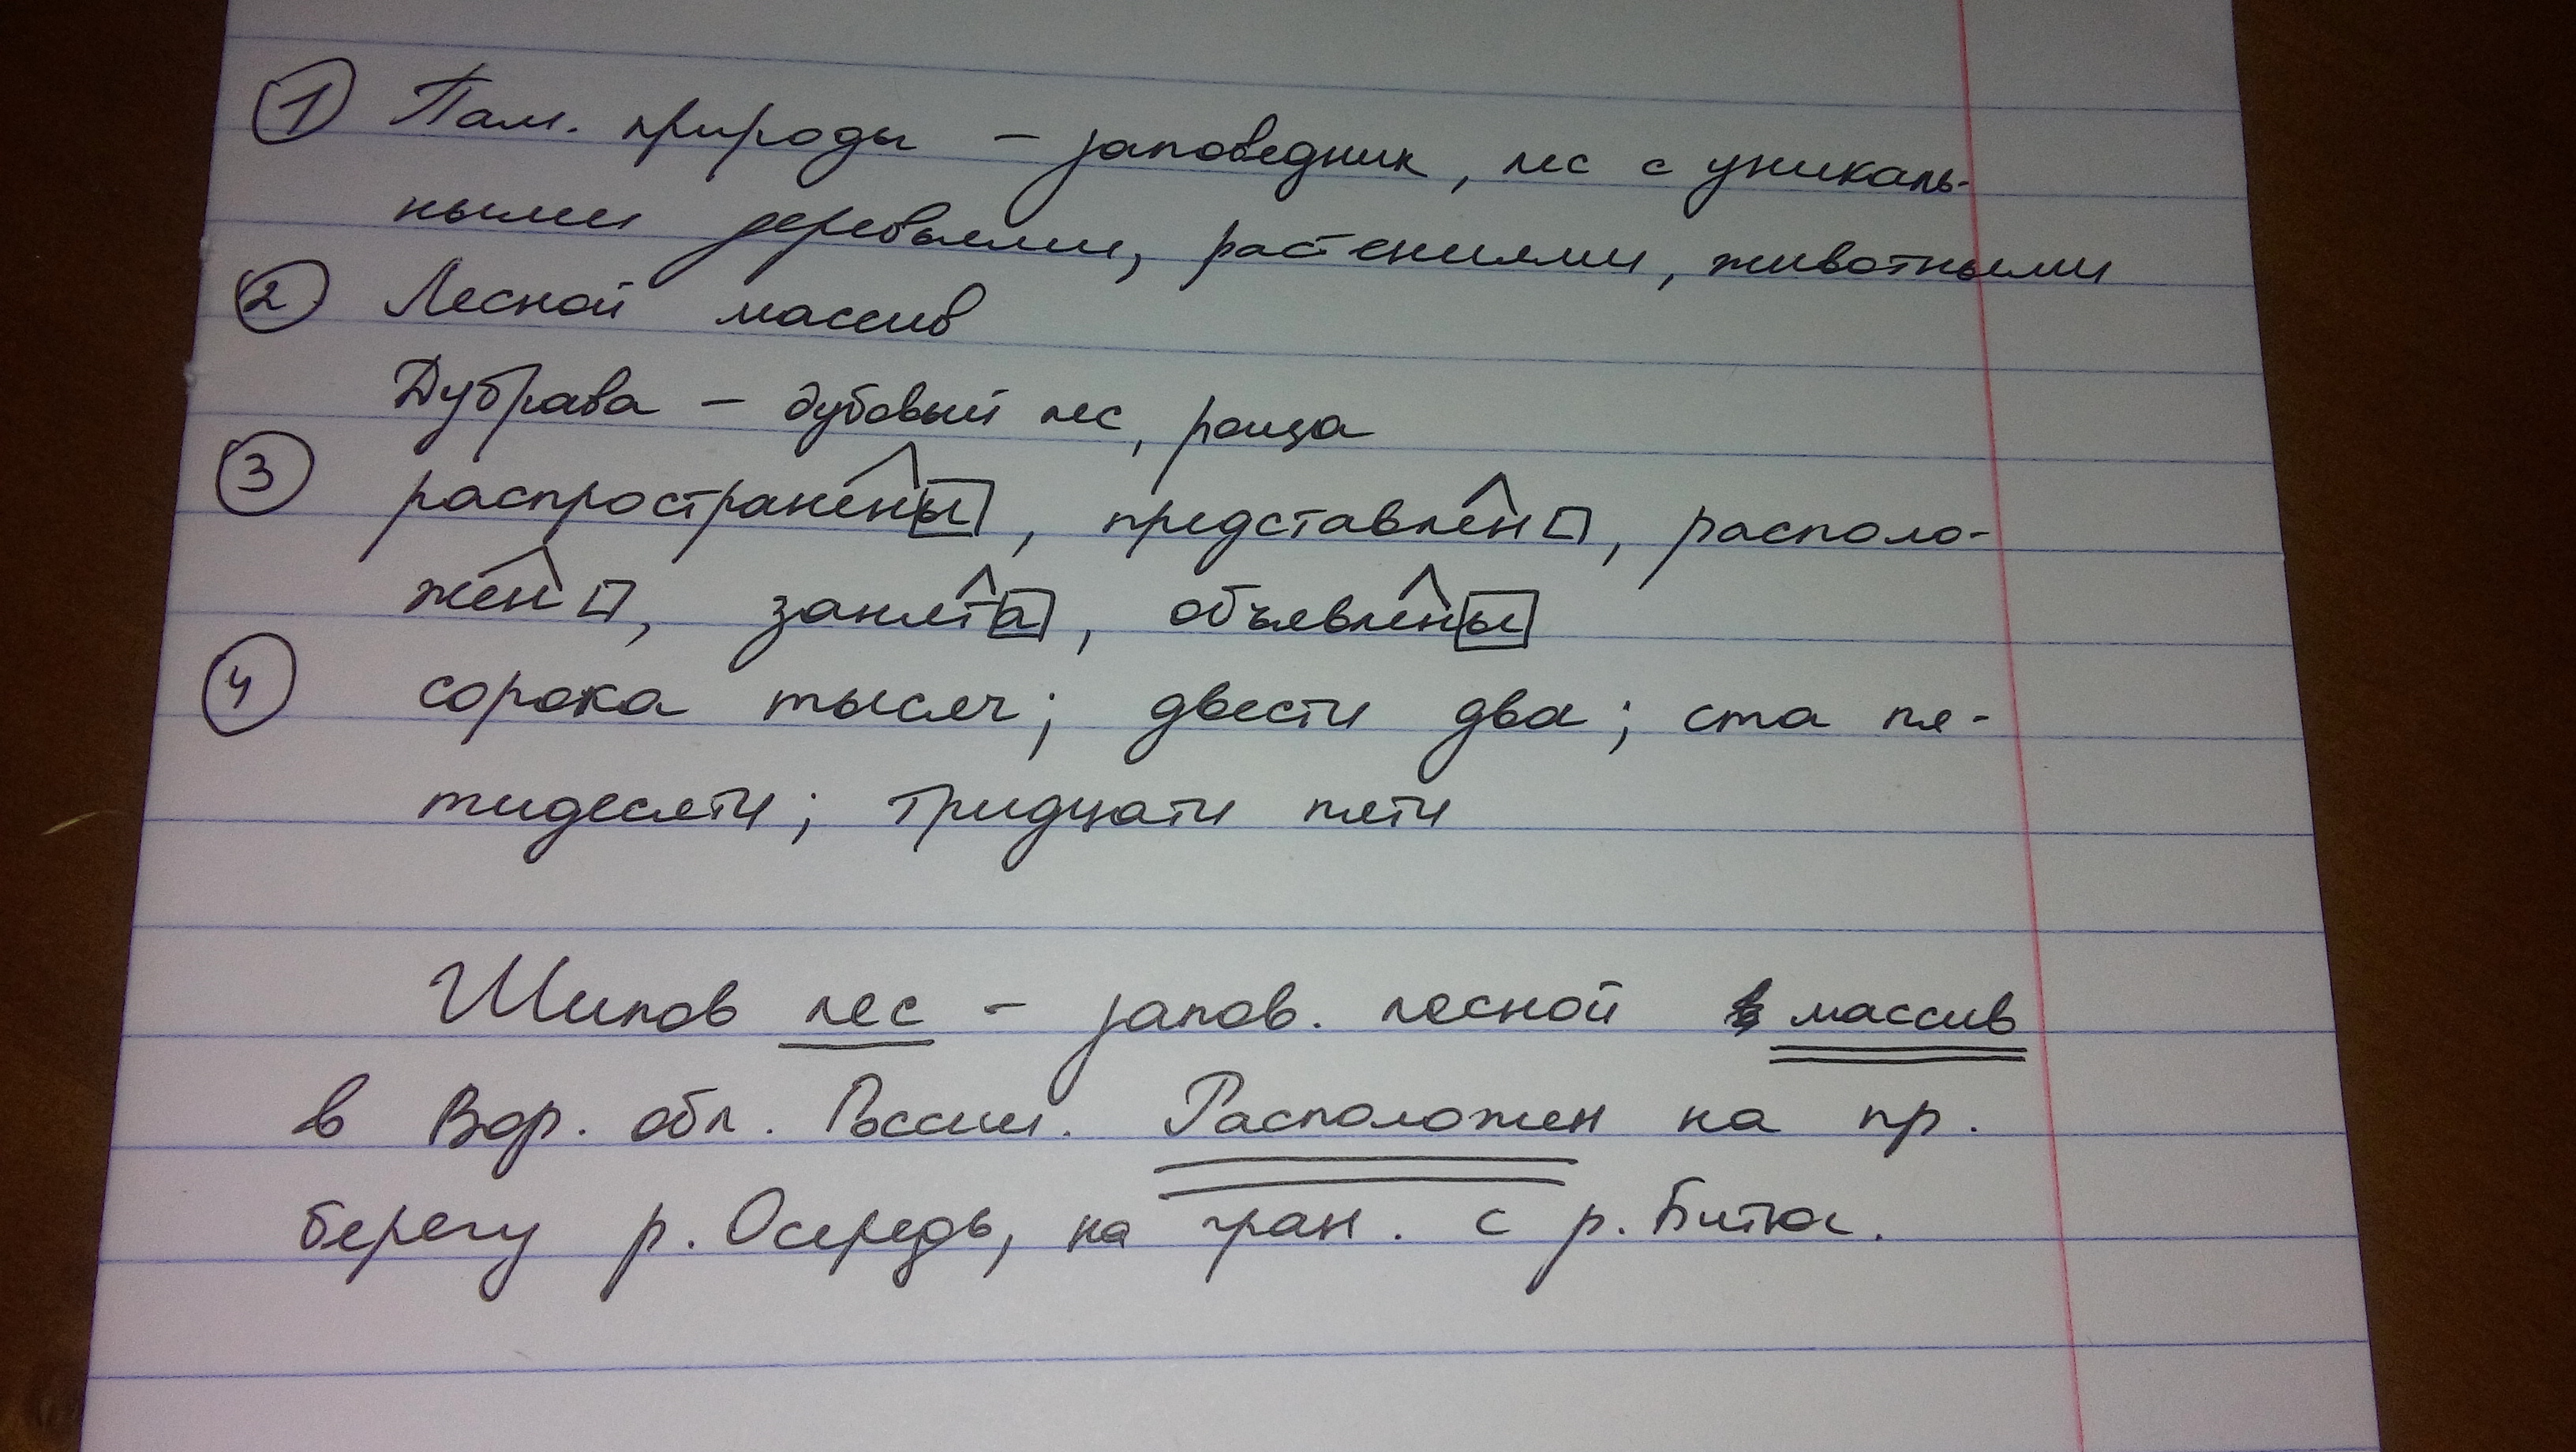 ① Пам. природы – заповедник, лес с уникаль-
ными деревьями, растениями, животными
② Лесной массив
Дубрава – дубовый лес, роща
③ распространены, представлен, располо-
жен, занята, объявлены
④ сорока тысяч; двести два; ста пя-
тидесяти; тридцати пяти
Шипов лес – запов. лесной массив
в Вор. обл. России. Расположен на пр.
берегу р. Осередь, на гран. с р. Битюг.